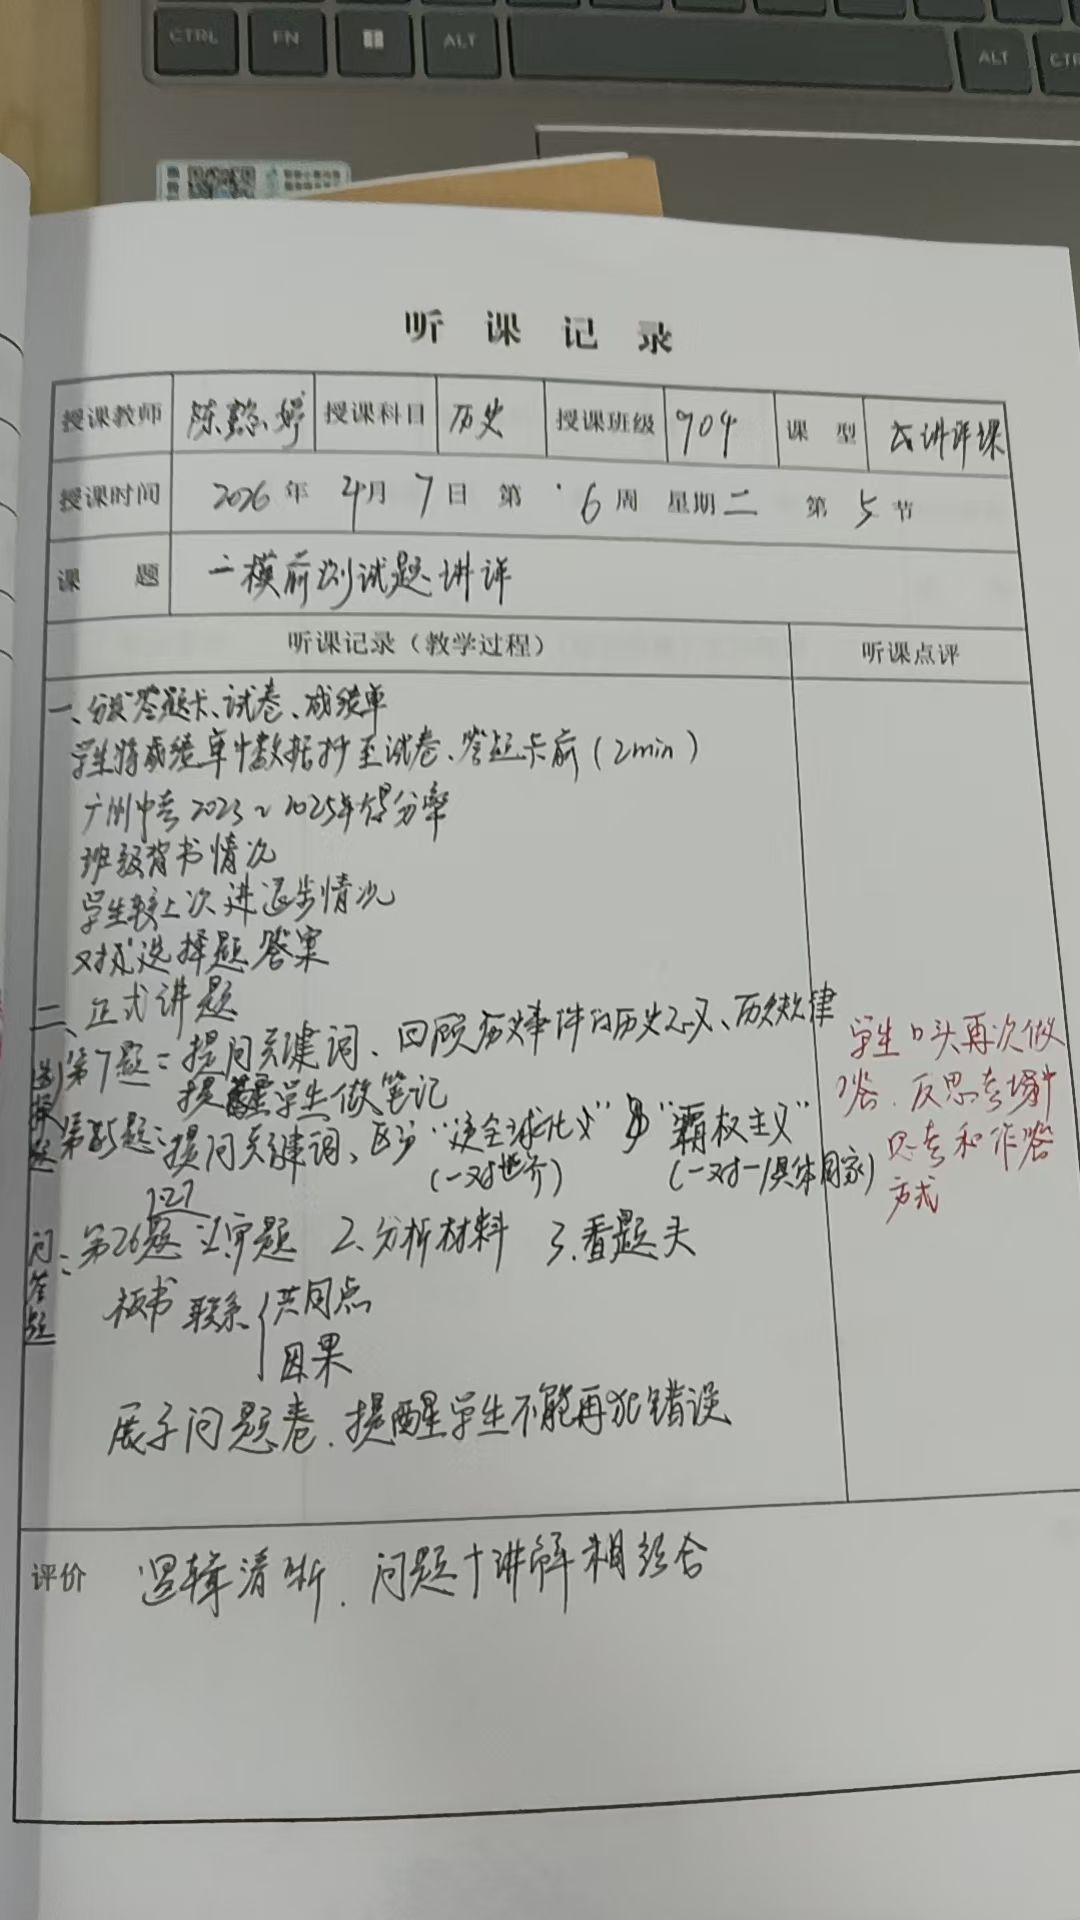 CTRL FN ALT ALT CTR
听课记录
授课教师 陈懿婷 授课科目 历史 授课班级 904 课型 试讲评课
授课时间 2026年4月7日 第6周 星期二 第5节
课题 一模前测试题讲评
听课记录（教学过程） 听课点评
一、分发答题卡、试卷、成绩单
学生将成绩单中数据抄至试卷、答题卡前（2min）
广州中考2023~2025年得分率
班级背书情况
学生较上次进退步情况
对选择题答案
二、正式讲题
选择题
第7题：提问关键词、回顾历史事件的历史意义、历史规律
提醒学生做笔记
题：提问关键词、区分“逆全球化”与“霸权主义”
（一对世界） （一对一/具体国家）
问答题：
第26题 1.审题 2.分析材料 3.看题头
1.27
板书 联系 { 共同点
因果
展示问题卷，提醒学生不能再犯错误
学生口头再次做
答，反思考场中
思考和作答
方式
评价 逻辑清晰，问题+讲解相结合